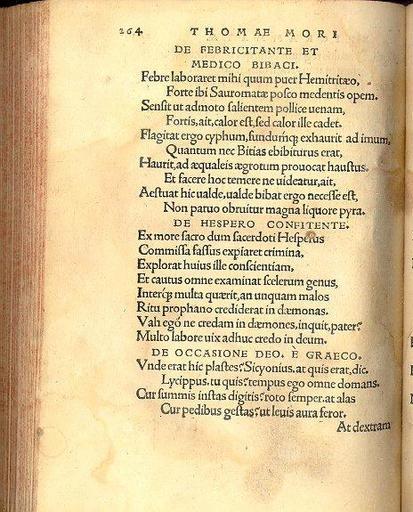 264 THOMAE MORI
DE FEBRICITANTE ET
MEDICO BIBACI.
Febre laboraret mihi quum puer Hemitritæo,
Forte ibi Sauromatæ posco medentis opem.
Sensit ut admoto salientem pollice uenam,
Fortis, ait, calor est, sed calor ille cadet.
Flagitat ergo cyphum, fundumq́; exhaurit ad imum,
Quantum nec Bitias ebibiturus erat,
Haurit, ad æqualeis ægrotum prouocat haustus.
Et facere hoc temere ne uideatur, ait,
Aestuat hic ualde, ualde bibat ergo necesse est,
Non paruo obruitur magna liquore pyra.
DE HESPERO CONFITENTE.
Ex more sacro dum sacerdoti Hesperus
Commissa fassus expiaret crimina,
Explorat huius ille conscientiam,
Et cautus omne examinat scelerum genus,
Interq́; multa quærit, an unquam malos
Ritu prophano crediderat in dæmonas.
Vah egó ne credam in dæmones, inquit, pater?
Multo labore uix adhuc credo in deum.
DE OCCASIONE DEO. È GRAECO.
Vnde erat hic plastes? Sicyonius. at quis erat, dic.
Lysippus. tu quis? tempus ego omne domans.
Cur summis instas digitis? roto semper. at alas
Cur pedibus gestas? ut leuis aura feror.
At dextram